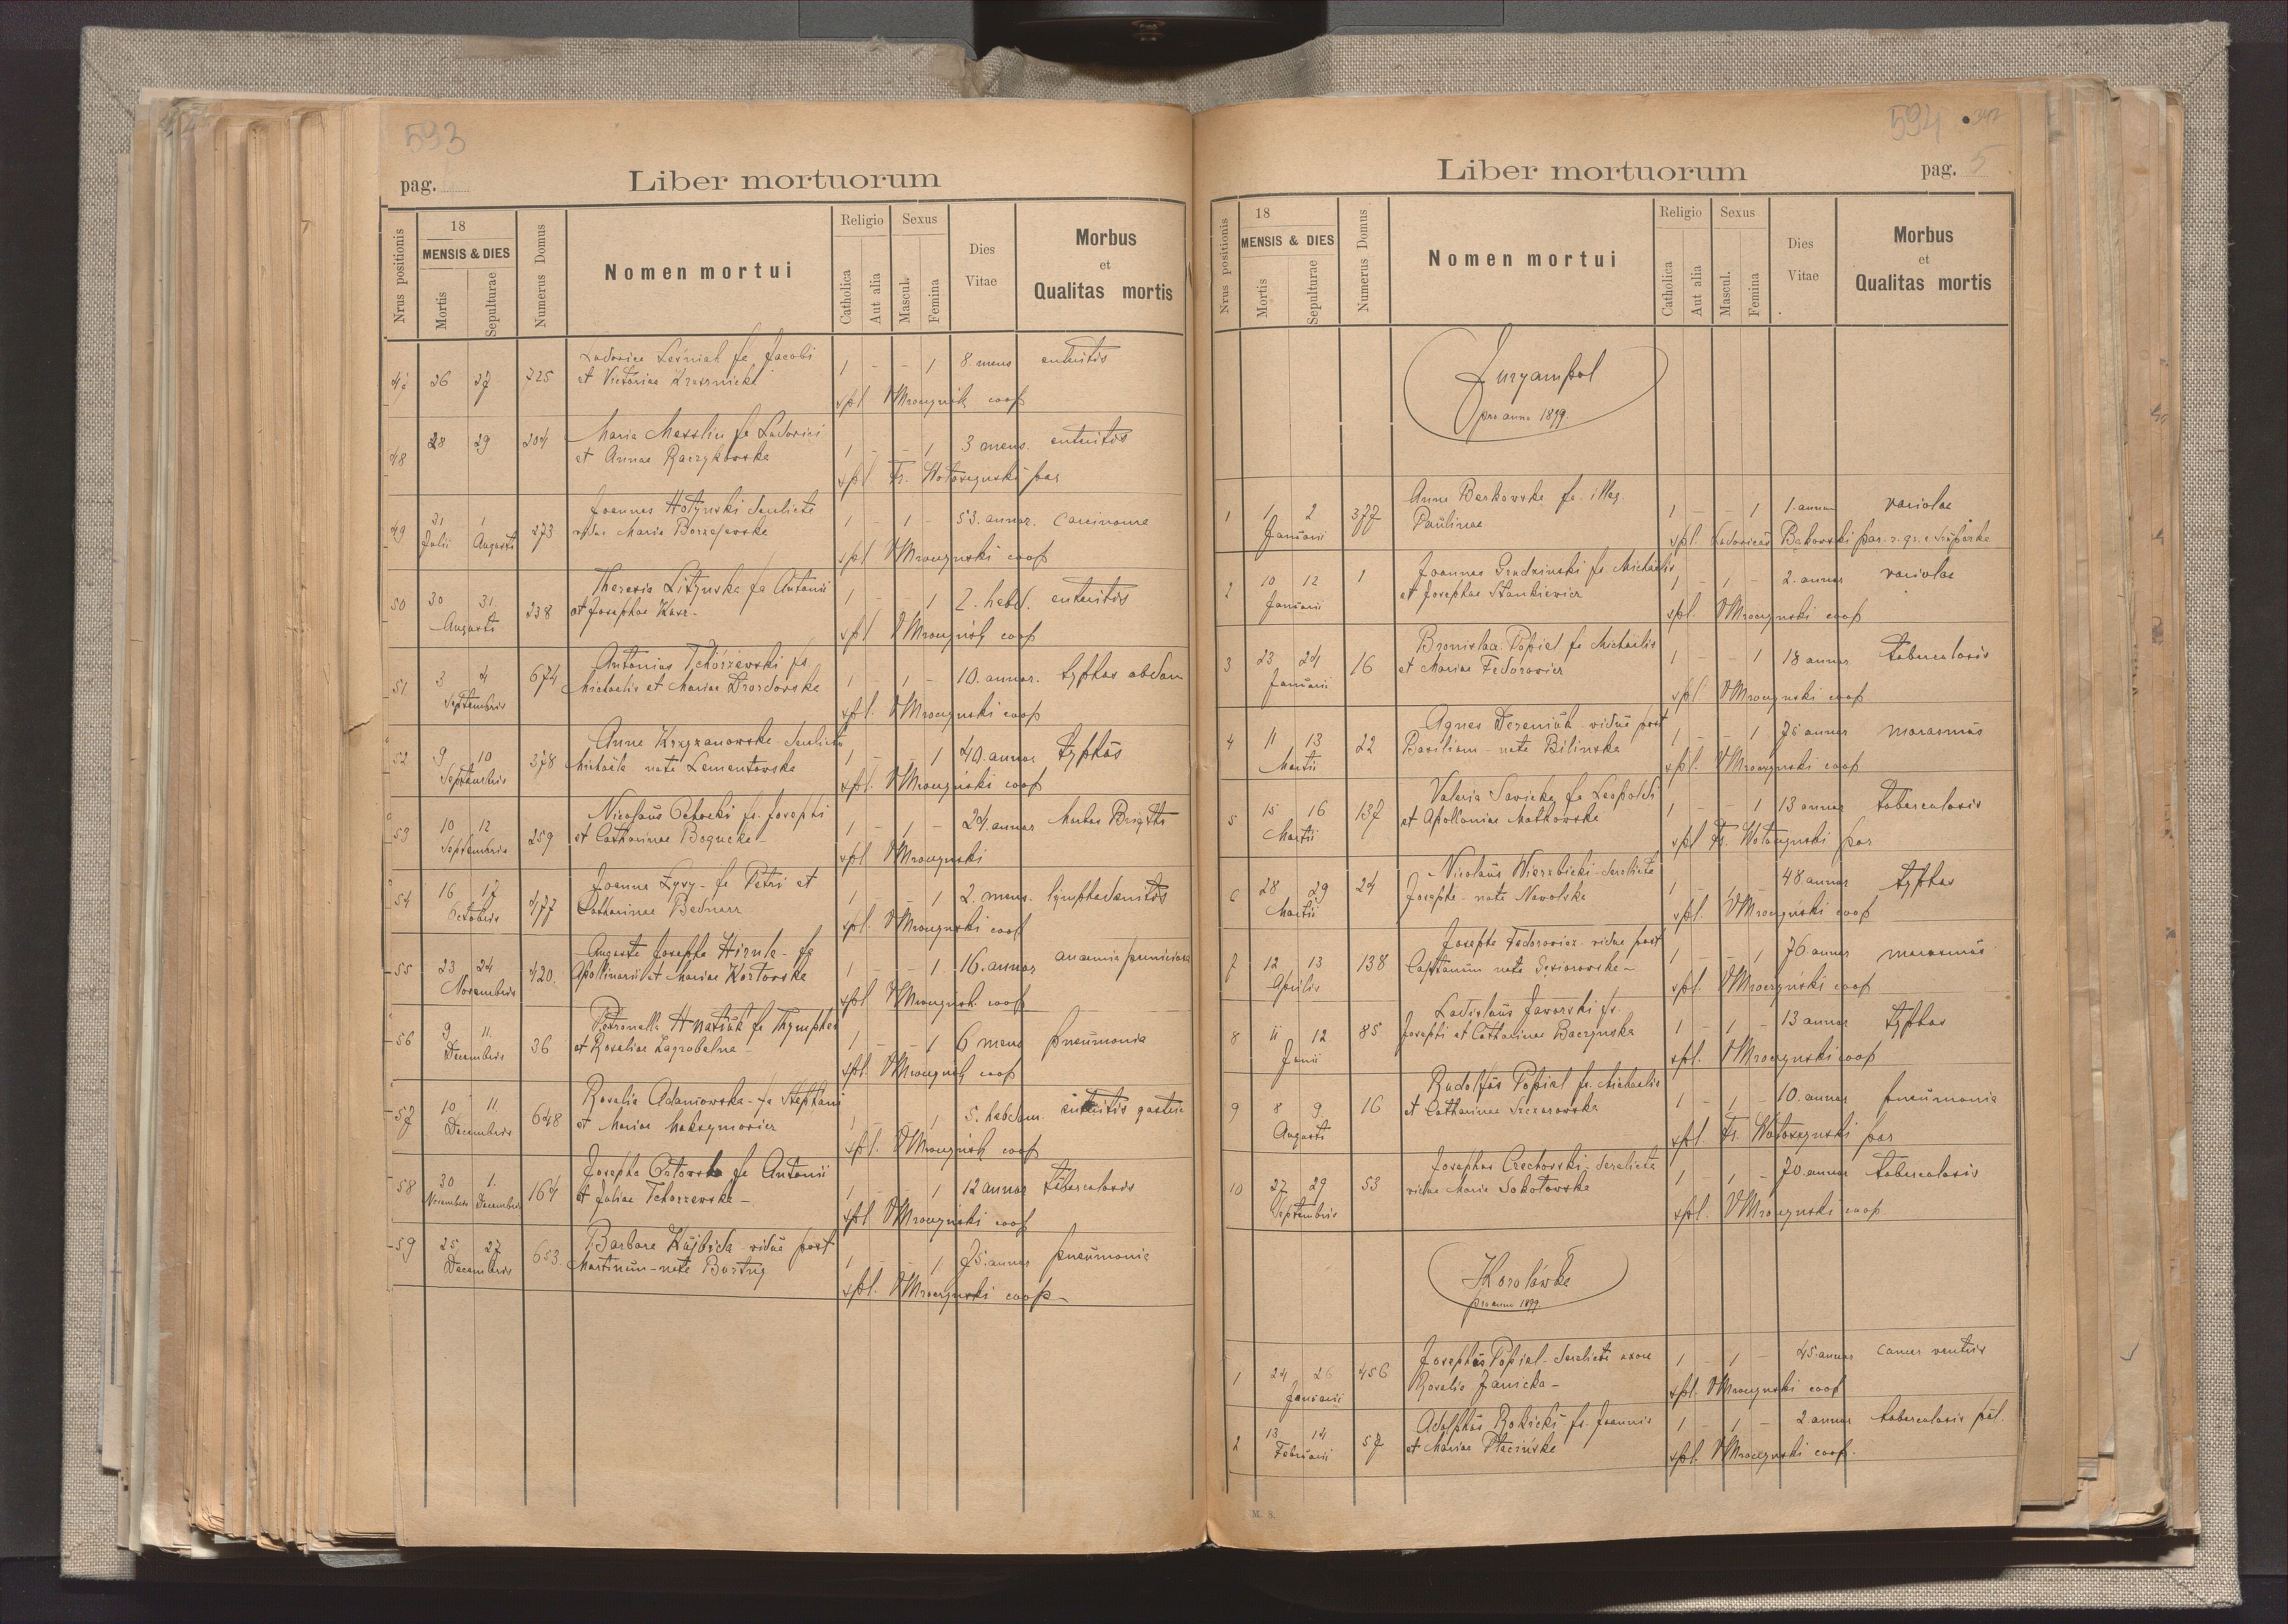 593
pag.
Liber mortuorum
Nrus positionis
18
MENSIS & DIES
Mortis
Sepulturae
Numerus Domus
Nomen mortui
Religio
Catholica
Aut alia
Sexus
Mascul.
Femina
Dies
Vitae
Morbus
et
Qualitas mortis
26 27 725 Ludovica Leśniak fa Jacobi 1 - - 1 8. mens
et Victoriae
spl VMroczyńsk coop
48 28 29 204 Maria fa Ludovici 1 - - 1 3 mens.
et Annae Raczykowska
spl Fr. Wołoszynski par
49 31 1 273 Joannes Hołynski derelicta 1 - 1 - 53. annor. Carcinoma
Julii Augusti vidua Maria
spl VMroczynski coop
50 30 31. 238 Theresia Lityńska fa Antonii 1 - - 1 2. hebd.
Augusti et Josephae
spl VMroczyńsk coop
51 3 4 674 Antonius Tchórzewski fs. 1 - 1 - 10. annor. typhus abdom
Septembris Michaelis et Mariae Drozdowska
spl. VMroczynski coop
52 9 10 378 Anna Krzyzanowska derelicto 1 - - 1 40. annor typhus
Septembris Michaele nata Lementowska
spl. VMroczyński coop
53 10 12 259 Nicolaus fs. Josephi 1 - 1 - 24. annor Morbus Brigthi
Septembris et Catharinae Bogucka -
spl VMroczynski
54 16 17 477 Joanna Łysy - fa Petri et 1 - - 1 2. mens. lymphadenitis
Octobris Catharinae Bednarz
spl. VMroczynski coop
55 23 24 420. Augusta Josepha Hirnle - fa 1 - - 1 16. annor anaemia perniciosa
Novembris Apollinarii et Mariae
spl VMroczyńsk. coop
56 9 11. 36 Petronella Hnatiuk fa 1 - - 1 6 mens pneumonia
Decembris et Rosaliae Zagrobelna -
spl. VMroczyńsk coop
57 10 11. 648 Rosalia Adamowska - fa Stephani 1 - - 1 5. hebdom.
Decembris et Mariae Maksymowicz
spl. VMroczyńsk coop
58 30 1. 164 Josepha fa Antonii 1 - - 1 12 annor tuberculosis
Novembris Decembris et Juliae Tchorzewska -
spl VMroczyński coop
59 25 27 653. Barbara Kujbida - vidua post 1 - - 1 75. annor pneumonia
Decembris Martinum - nata
spl. VMroczynski coop -
594
pag. 5
Liber mortuorum
Nrus positionis
18
MENSIS & DIES
Mortis
Sepulturae
Numerus Domus
Nomen mortui
Religio
Catholica
Aut alia
Sexus
Mascul.
Femina
Dies
Vitae
Morbus
et
Qualitas mortis
Juryampol
pro anno 1899.
1 1 2 377 Anna Baskowska fa. illeg. 1 - - 1 1. annor variolae
Januarii Paulinae
spl. Ludovicus Bakowski par. r. gr.
2 10 12 1 Joannes Grudzinski fs. Michaelis 1 - 1 - 2. annor variolae
Januarii et Josephae Stankiewicz
spl. VMroczynski coop
3 23 24 16 Bronislaa Popiel fa Michaelis 1 - - 1 18 annor tuberculosis
Januarii et Mariae Fedorowicz
spl. VMroczynski coop
4 11 13 22 Agnes Dereniuk - vidua post 1 - - 1 75 annor marasmus
Martii Basilium - nata Bilinska
spl. VMroczynski coop
5 15 16 137 Valeria Sawicka fa Leopoldi 1 - - 1 13 annor tuberculosis
Martii et Apolloniae Matkowska
spl Fr. Wołoszynski par
6 28 29 24 Nicolaus Wierzbicki - derelicta 1 - 1 - 48. annor typhus
Martii Josepha - nata Nawolska
spl. VMroczyński coop
7 12 13 138 Josepha Fedorowicz vidua post 1 - - 1 76. annor marasmus
Aprilis nata
spl. VMroczyński coop
8 11 12 85 Ladislaus Jaworski fs. 1 - 1 - 13 annor typhus
Junii Josephi et Catharinae Baczynska
spl. VMroczynski coop
9 8 9. 16 Rudolfus Popiel fs. Michaelis 1 - 1 - 10. annor pneumonia
Augusti et Catharinae
spl. Fr. Wołoszynski par
10 27 29 53 Josephus Czechowski - derelicta 1 - 1 - 70. annor tuberculosis
Septembris vidua Maria Sokołowska
spl. VMroczynski coop
Korolówka
pro anno 1899.
1 24 26 456 Josephus Popiel - derelicta uxore 1 - 1 - 45. annor cancer ventris
Januarii Rosalia Janicka -
spl. VMroczynski coop
2 13 14 57 Adolphus Rokicki - fs. Joannis 1 - 1 - 2 annor tuberculosis pul.
Februarii et Mariae Płacińska
spl. VMroczynski coop.
M. S.